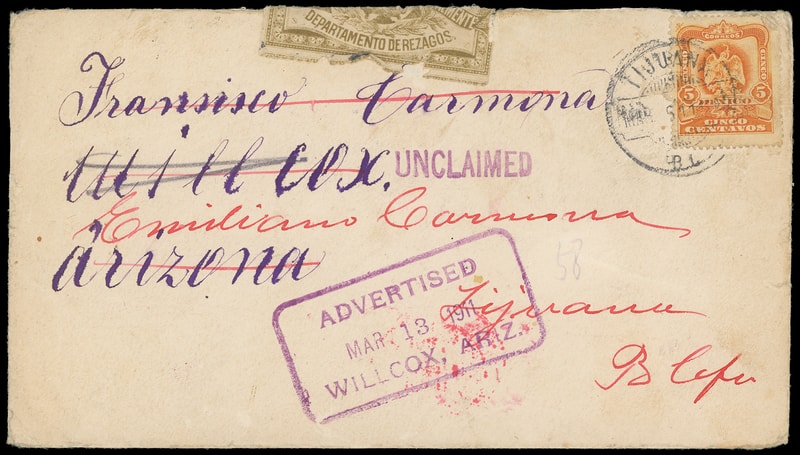 DEPARTAMENTO DE REZAGOS.
CORREOS
MEXICO
5 5
CINCO
CENTAVOS
TIJUANA
B.C.
Fransisco Carmona
Willcox.
UNCLAIMED
Emiliano Carmona
Arizona
ADVERTISED
MAR 13 1911
WILLCOX, ARIZ.
58
Tijuana
B Cfa